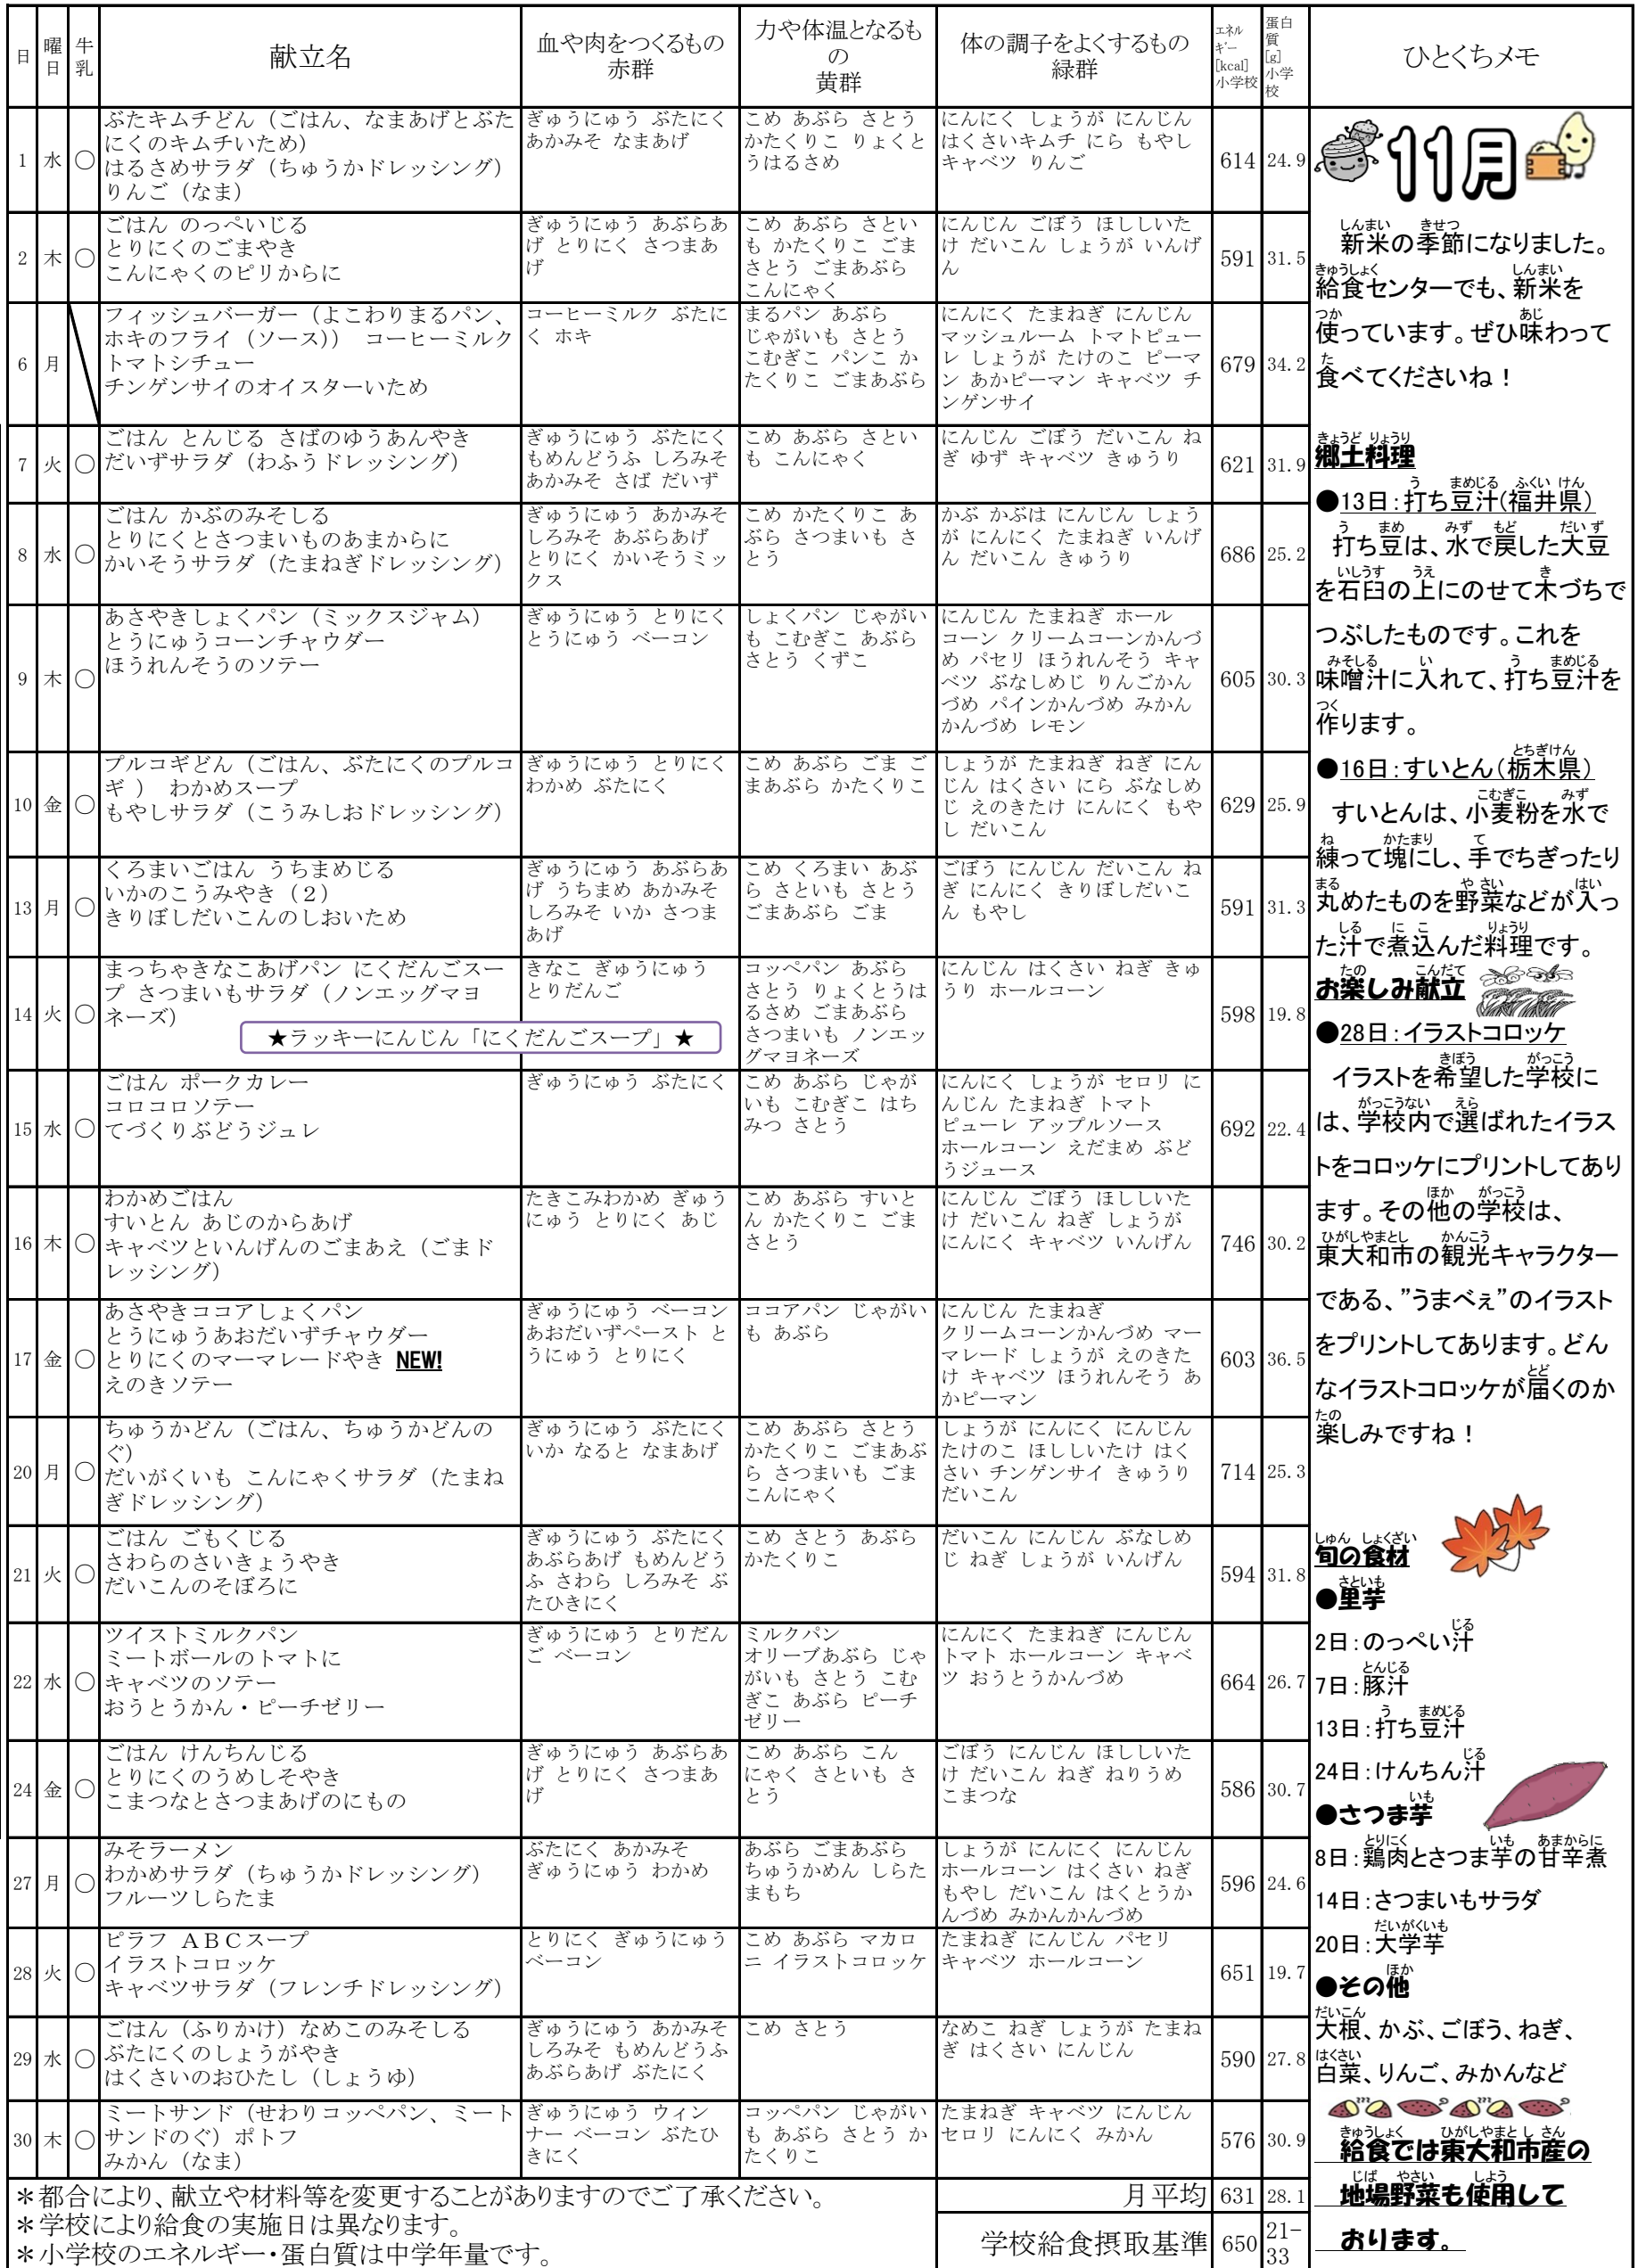 日
曜日
牛乳
献立名
血や肉をつくるもの
赤群
力や体温となるもの
黄群
体の調子をよくするもの
緑群
エネルギー[kcal]小学校
蛋白質[g]小学校
ひとくちメモ
1 水 ○
ぶたキムチどん（ごはん、なまあげとぶた
にくのキムチいため）
はるさめサラダ（ちゅうかドレッシング）
りんご（なま）
ぎゅうにゅう ぶたにく
あかみそ なまあげ
こめ あぶら さとう
かたくりこ りょくと
うはるさめ
にんにく しょうが にんじん
はくさいキムチ にら もやし
キャベツ りんご
614 24.9
2 木 ○
ごはん のっぺいじる
とりにくのごまやき
こんにゃくのピリからに
ぎゅうにゅう あぶらあ
げ とりにく さつまあ
げ
こめ あぶら さとい
も かたくりこ ごま
さとう ごまあぶら
こんにゃく
にんじん ごぼう ほししいた
け だいこん しょうが いんげ
ん
591 31.5
6 月
フィッシュバーガー（よこわりまるパン、
ホキのフライ（ソース）） コーヒーミルク
トマトシチュー
チンゲンサイのオイスターいため
コーヒーミルク ぶたに
く ホキ
まるパン あぶら
じゃがいも さとう
こむぎこ パンこ か
たくりこ ごまあぶら
にんにく たまねぎ にんじん
マッシュルーム トマトピュー
レ しょうが たけのこ ピーマ
ン あかピーマン キャベツ チ
ンゲンサイ
679 34.2
7 火 ○
ごはん とんじる さばのゆうあんやき
だいずサラダ（わふうドレッシング）
ぎゅうにゅう ぶたにく
もめんどうふ しろみそ
あかみそ さば だいず
こめ あぶら さとい
も こんにゃく
にんじん ごぼう だいこん ね
ぎ ゆず キャベツ きゅうり
621 31.9
8 水 ○
ごはん かぶのみそしる
とりにくとさつまいものあまからに
かいそうサラダ（たまねぎドレッシング）
ぎゅうにゅう あかみそ
しろみそ あぶらあげ
とりにく かいそうミッ
クス
こめ かたくりこ あ
ぶら さつまいも さ
とう
かぶ かぶは にんじん しょう
が にんにく たまねぎ いんげ
ん だいこん きゅうり
686 25.2
9 木 ○
あさやきしょくパン（ミックスジャム）
とうにゅうコーンチャウダー
ほうれんそうのソテー
ぎゅうにゅう とりにく
とうにゅう ベーコン
しょくパン じゃがい
も こむぎこ あぶら
さとう くずこ
にんじん たまねぎ ホール
コーン クリームコーンかんづ
め パセリ ほうれんそう キャ
ベツ ぶなしめじ りんごかん
づめ パインかんづめ みかん
かんづめ レモン
605 30.3
10 金 ○
プルコギどん（ごはん、ぶたにくのプルコ
ギ ） わかめスープ
もやしサラダ（こうみしおドレッシング）
ぎゅうにゅう とりにく
わかめ ぶたにく
こめ あぶら ごま ご
まあぶら かたくりこ
しょうが たまねぎ ねぎ にん
じん はくさい にら ぶなしめ
じ えのきたけ にんにく もや
し だいこん
629 25.9
13 月 ○
くろまいごはん うちまめじる
いかのこうみやき（２）
きりぼしだいこんのしおいため
ぎゅうにゅう あぶらあ
げ うちまめ あかみそ
しろみそ いか さつま
あげ
こめ くろまい あぶ
ら さといも さとう
ごまあぶら ごま
ごぼう にんじん だいこん ね
ぎ にんにく きりぼしだいこ
ん もやし
591 31.3
14 火 ○
まっちゃきなこあげパン にくだんごスー
プ さつまいもサラダ（ノンエッグマヨ
ネーズ）
★ラッキーにんじん「にくだんごスープ」★
きなこ ぎゅうにゅう
とりだんご
コッペパン あぶら
さとう りょくとうは
るさめ ごまあぶら
さつまいも ノンエッ
グマヨネーズ
にんじん はくさい ねぎ きゅ
うり ホールコーン
598 19.8
15 水 ○
ごはん ポークカレー
コロコロソテー
てづくりぶどうジュレ
ぎゅうにゅう ぶたにく
こめ あぶら じゃが
いも こむぎこ はち
みつ さとう
にんにく しょうが セロリ に
んじん たまねぎ トマト
ピューレ アップルソース
ホールコーン えだまめ ぶど
うジュース
692 22.4
16 木 ○
わかめごはん
すいとん あじのからあげ
キャベツといんげんのごまあえ（ごまド
レッシング）
たきこみわかめ ぎゅう
にゅう とりにく あじ
こめ あぶら すいと
ん かたくりこ ごま
さとう
にんじん ごぼう ほししいた
け だいこん ねぎ しょうが
にんにく キャベツ いんげん
746 30.2
17 金 ○
あさやきココアしょくパン
とうにゅうあおだいずチャウダー
とりにくのマーマレードやき NEW!
えのきソテー
ぎゅうにゅう ベーコン
あおだいずペースト と
うにゅう とりにく
ココアパン じゃがい
も あぶら
にんじん たまねぎ
クリームコーンかんづめ マー
マレード しょうが えのきた
け キャベツ ほうれんそう あ
かピーマン
603 36.5
20 月 ○
ちゅうかどん（ごはん、ちゅうかどんの
ぐ）
だいがくいも こんにゃくサラダ（たまね
ぎドレッシング）
ぎゅうにゅう ぶたにく
いか なると なまあげ
こめ あぶら さとう
かたくりこ ごまあぶ
ら さつまいも ごま
こんにゃく
しょうが にんにく にんじん
たけのこ ほししいたけ はく
さい チンゲンサイ きゅうり
だいこん
714 25.3
21 火 ○
ごはん ごもくじる
さわらのさいきょうやき
だいこんのそぼろに
ぎゅうにゅう ぶたにく
あぶらあげ もめんどう
ふ さわら しろみそ ぶ
たひきにく
こめ さとう あぶら
かたくりこ
だいこん にんじん ぶなしめ
じ ねぎ しょうが いんげん
594 31.8
22 水 ○
ツイストミルクパン
ミートボールのトマトに
キャベツのソテー
おうとうかん・ピーチゼリー
ぎゅうにゅう とりだん
ご ベーコン
ミルクパン
オリーブあぶら じゃ
がいも さとう こむ
ぎこ あぶら ピーチ
ゼリー
にんにく たまねぎ にんじん
トマト ホールコーン キャベ
ツ おうとうかんづめ
664 26.7
24 金 ○
ごはん けんちんじる
とりにくのうめしそやき
こまつなとさつまあげのにもの
ぎゅうにゅう あぶらあ
げ とりにく さつまあ
げ
こめ あぶら こん
にゃく さといも さ
とう
ごぼう にんじん ほししいた
け だいこん ねぎ ねりうめ
こまつな
586 30.7
27 月 ○
みそラーメン
わかめサラダ（ちゅうかドレッシング）
フルーツしらたま
ぶたにく あかみそ
ぎゅうにゅう わかめ
あぶら ごまあぶら
ちゅうかめん しらた
まもち
しょうが にんにく にんじん
ホールコーン はくさい ねぎ
もやし だいこん はくとうか
んづめ みかんかんづめ
596 24.6
28 火 ○
ピラフ ＡＢＣスープ
イラストコロッケ
キャベツサラダ（フレンチドレッシング）
とりにく ぎゅうにゅう
ベーコン
こめ あぶら マカロ
ニ イラストコロッケ
たまねぎ にんじん パセリ
キャベツ ホールコーン
651 19.7
29 水 ○
ごはん（ふりかけ）なめこのみそしる
ぶたにくのしょうがやき
はくさいのおひたし（しょうゆ）
ぎゅうにゅう あかみそ
しろみそ もめんどうふ
あぶらあげ ぶたにく
こめ さとう
なめこ ねぎ しょうが たまね
ぎ はくさい にんじん
590 27.8
30 木 ○
ミートサンド（せわりコッペパン、ミート
サンドのぐ）ポトフ
みかん（なま）
ぎゅうにゅう ウィン
ナー ベーコン ぶたひ
きにく
コッペパン じゃがい
も あぶら さとう か
たくりこ
たまねぎ キャベツ にんじん
セロリ にんにく みかん
576 30.9
＊都合により、献立や材料等を変更することがありますのでご了承ください。
＊学校により給食の実施日は異なります。
＊小学校のエネルギー・蛋白質は中学年量です。
月平均 631 28.1
学校給食摂取基準 650 21-33
11月
しんまい きせつ
新米の季節になりました。
きゅうしょく しんまい
給食センターでも、新米を
つか あじ
使っています。ぜひ味わって
た
食べてくださいね！
きょうど りょうり
郷土料理
う まめじる ふくい けん
●13日：打ち豆汁(福井県）
う まめ みず もど だいず
打ち豆は、水で戻した大豆
いしうす うえ き
を石臼の上にのせて木づちで
つぶしたものです。これを
みそしる い う まめじる
味噌汁に入れて、打ち豆汁を
つく
作ります。
とちぎけん
●16日：すいとん（栃木県）
こむぎこ みず
すいとんは、小麦粉を水で
ね かたまり て
練って塊にし、手でちぎったり
まる やさい はい
丸めたものを野菜などが入っ
しる にこ りょうり
た汁で煮込んだ料理です。
たの こんだて
お楽しみ献立
●28日：イラストコロッケ
きぼう がっこう
イラストを希望した学校に
がっこうない えら
は、学校内で選ばれたイラス
トをコロッケにプリントしてあり
ほか がっこう
ます。その他の学校は、
ひがしやまとし かんこう
東大和市の観光キャラクター
である、”うまべぇ”のイラスト
をプリントしてあります。どん
とど
なイラストコロッケが届くのか
たの
楽しみですね！
しゅん しょくざい
旬の食材
さといも
●里芋
じる
2日：のっぺい汁
とんじる
7日：豚汁
う まめじる
13日：打ち豆汁
じる
24日：けんちん汁
いも
●さつま芋
とりにく いも あまからに
8日：鶏肉とさつま芋の甘辛煮
14日：さつまいもサラダ
だいがくいも
20日：大学芋
ほか
●その他
だいこん
大根、かぶ、ごぼう、ねぎ、
はくさい
白菜、りんご、みかんなど
きゅうしょく ひがしやまとし さん
給食では東大和市産の
じば やさい しよう
地場野菜も使用して
おります。